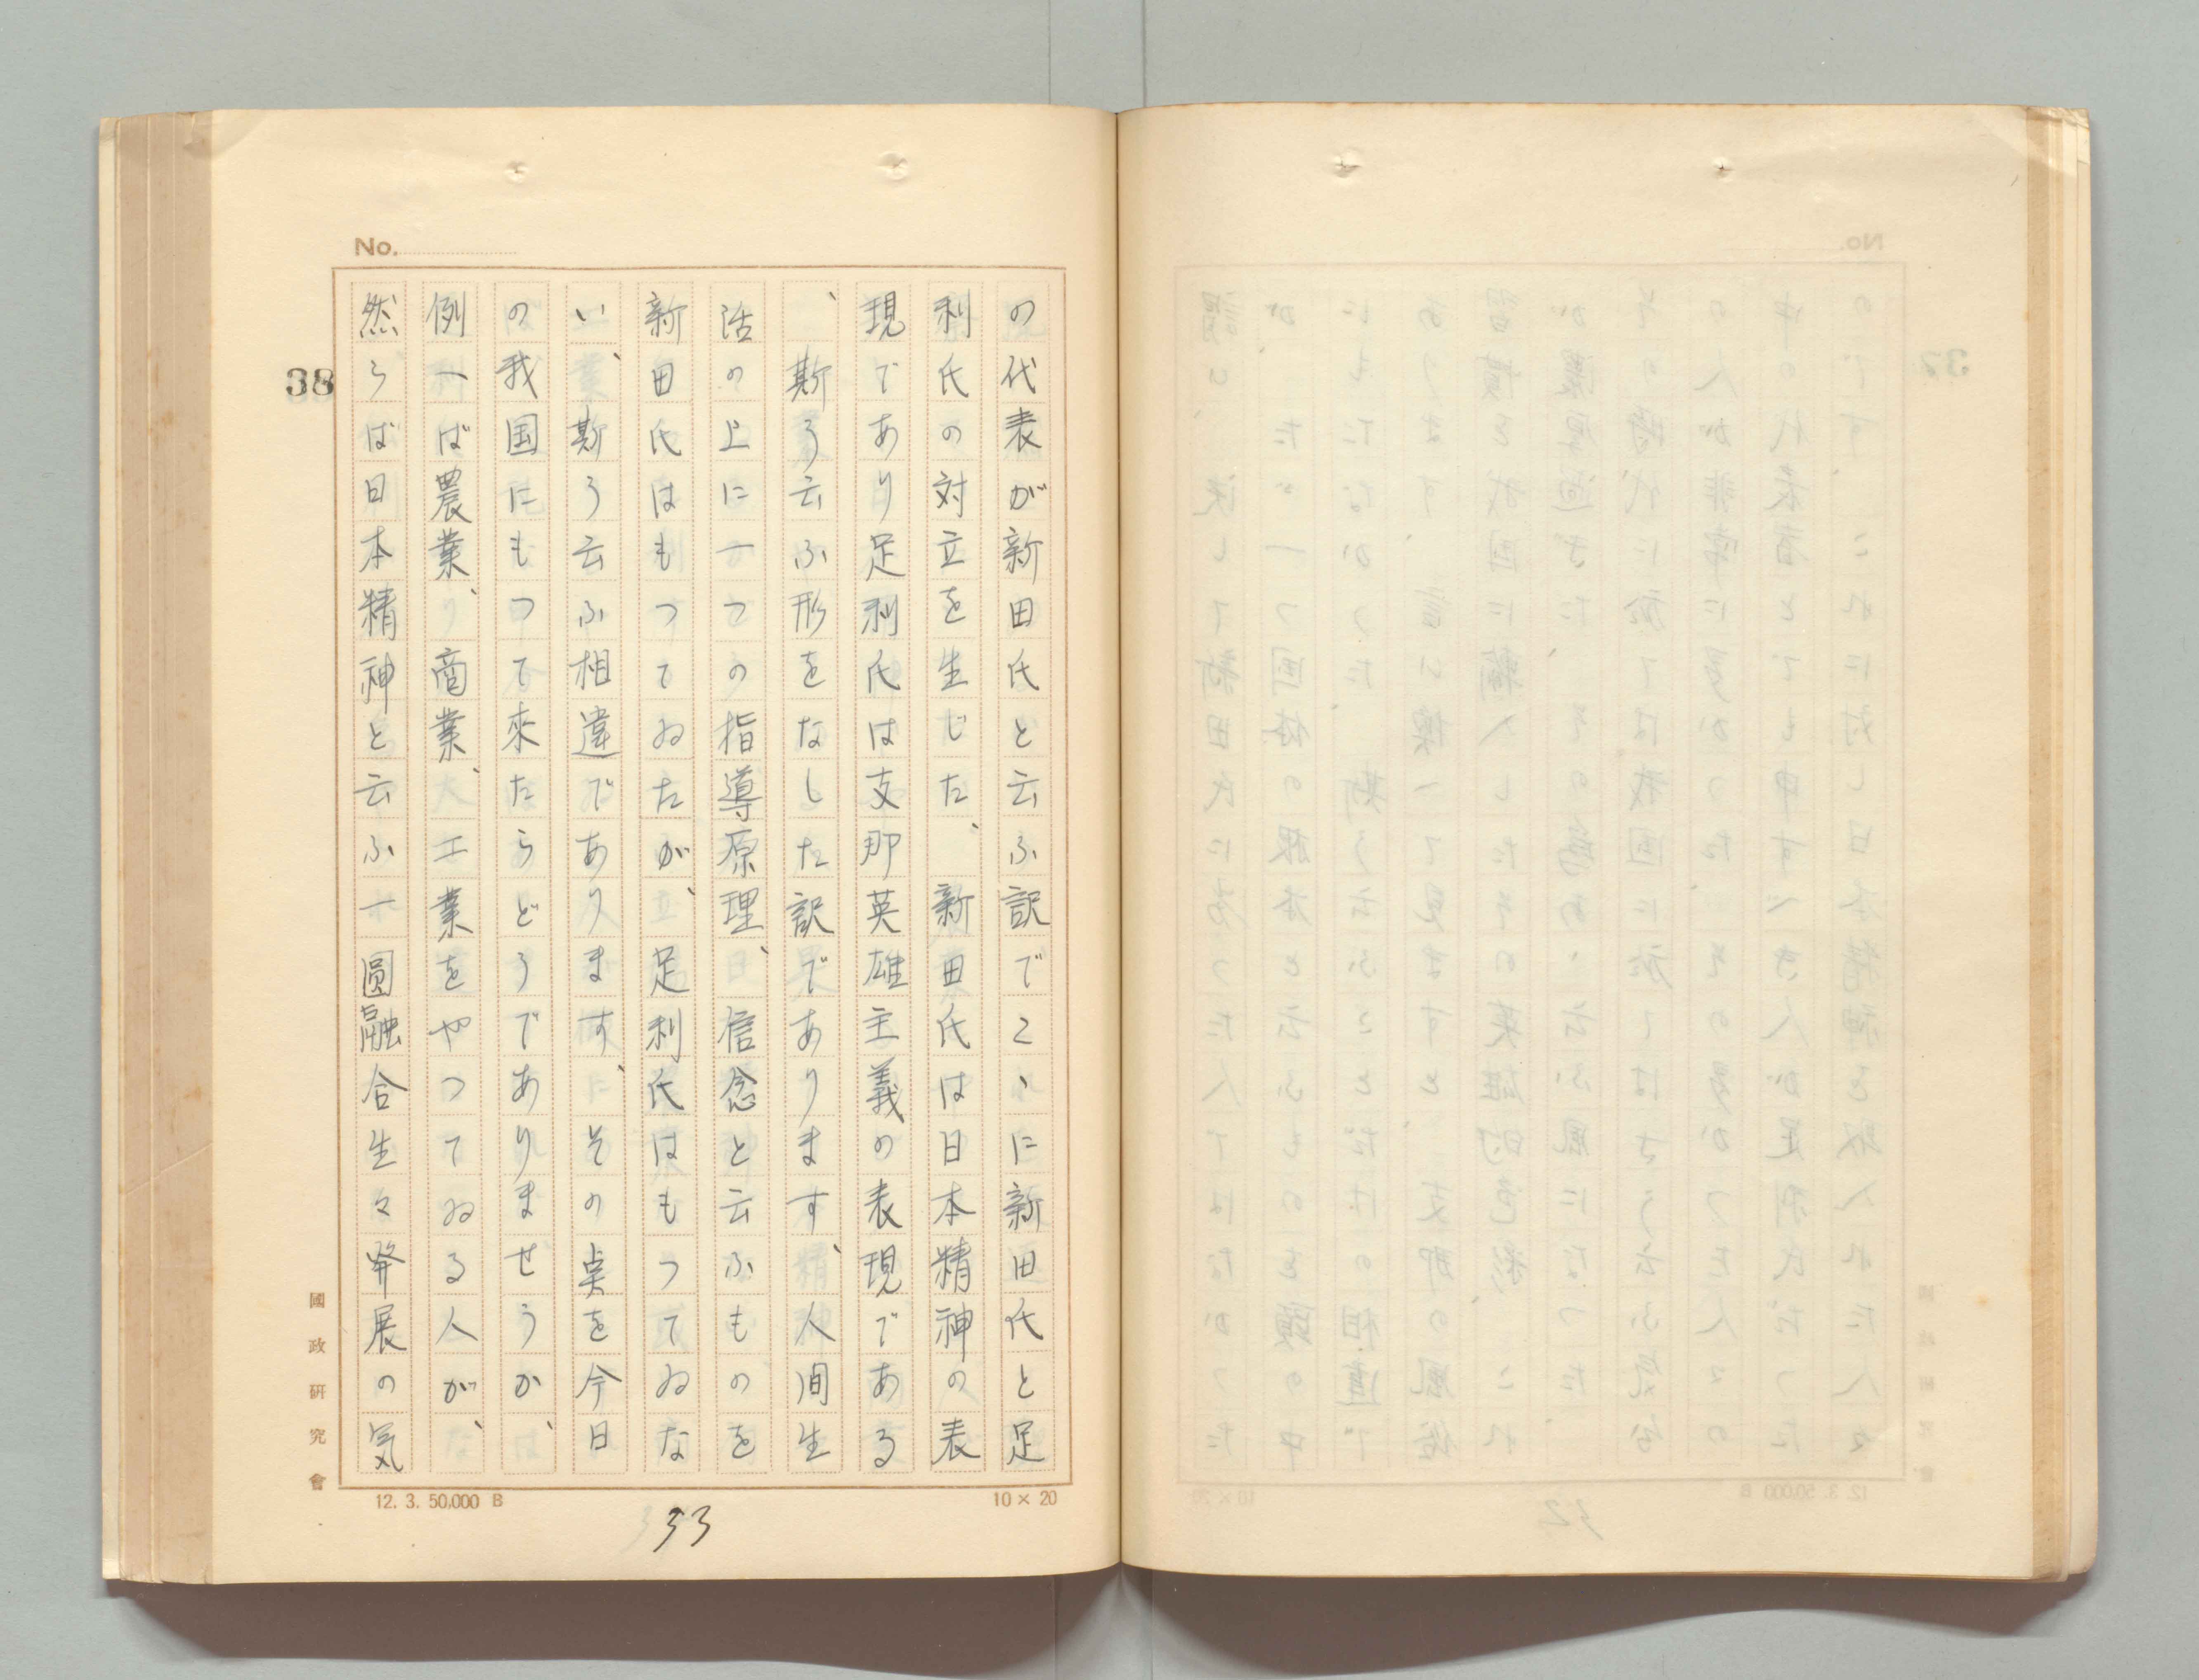 No.
38
の代表が新田氏と云ふ訳でこゝに新田氏と足
利氏の対立を生じた、新田氏は日本精神の表
現であり足利氏は支那英雄主義の表現である
、斯う云ふ形をなした訳であります、人间生
活の上に一つの指導原理、信念と云ふものを
新田氏はもつてゐたが、足利氏はもつてゐな
い、斯う云ふ相違であります、その奌を今日
の我国にもつて來たらどうでありませうか、
例へば農業、商業、工業をやつてゐる人が、
然らば日本精神と云ふ一圓融合生々発展の気
國政研究會
12. 3. 50,000 B
10×20
33